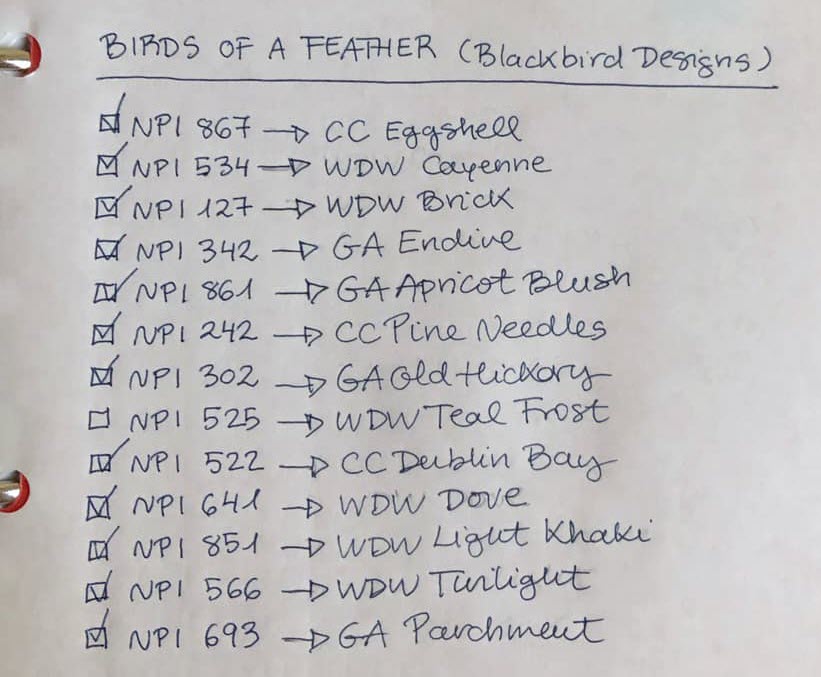 BIRDS OF A FEATHER (Blackbird Designs)
☑ NPI 867 → CC Eggshell
☑ NPI 534 → WDW Cayenne
☑ NPI 127 → WDW Brick
☑ NPI 342 → GA Endive
☑ NPI 861 → GA Apricot Blush
☑ NPI 242 → CC Pine Needles
☑ NPI 302 → GA Old Hickory
☐ NPI 525 → WDW Teal Frost
☑ NPI 522 → CC Dublin Bay
☑ NPI 641 → WDW Dove
☑ NPI 851 → WDW Light Khaki
☑ NPI 566 → WDW Twilight
☑ NPI 693 → GA Parchment